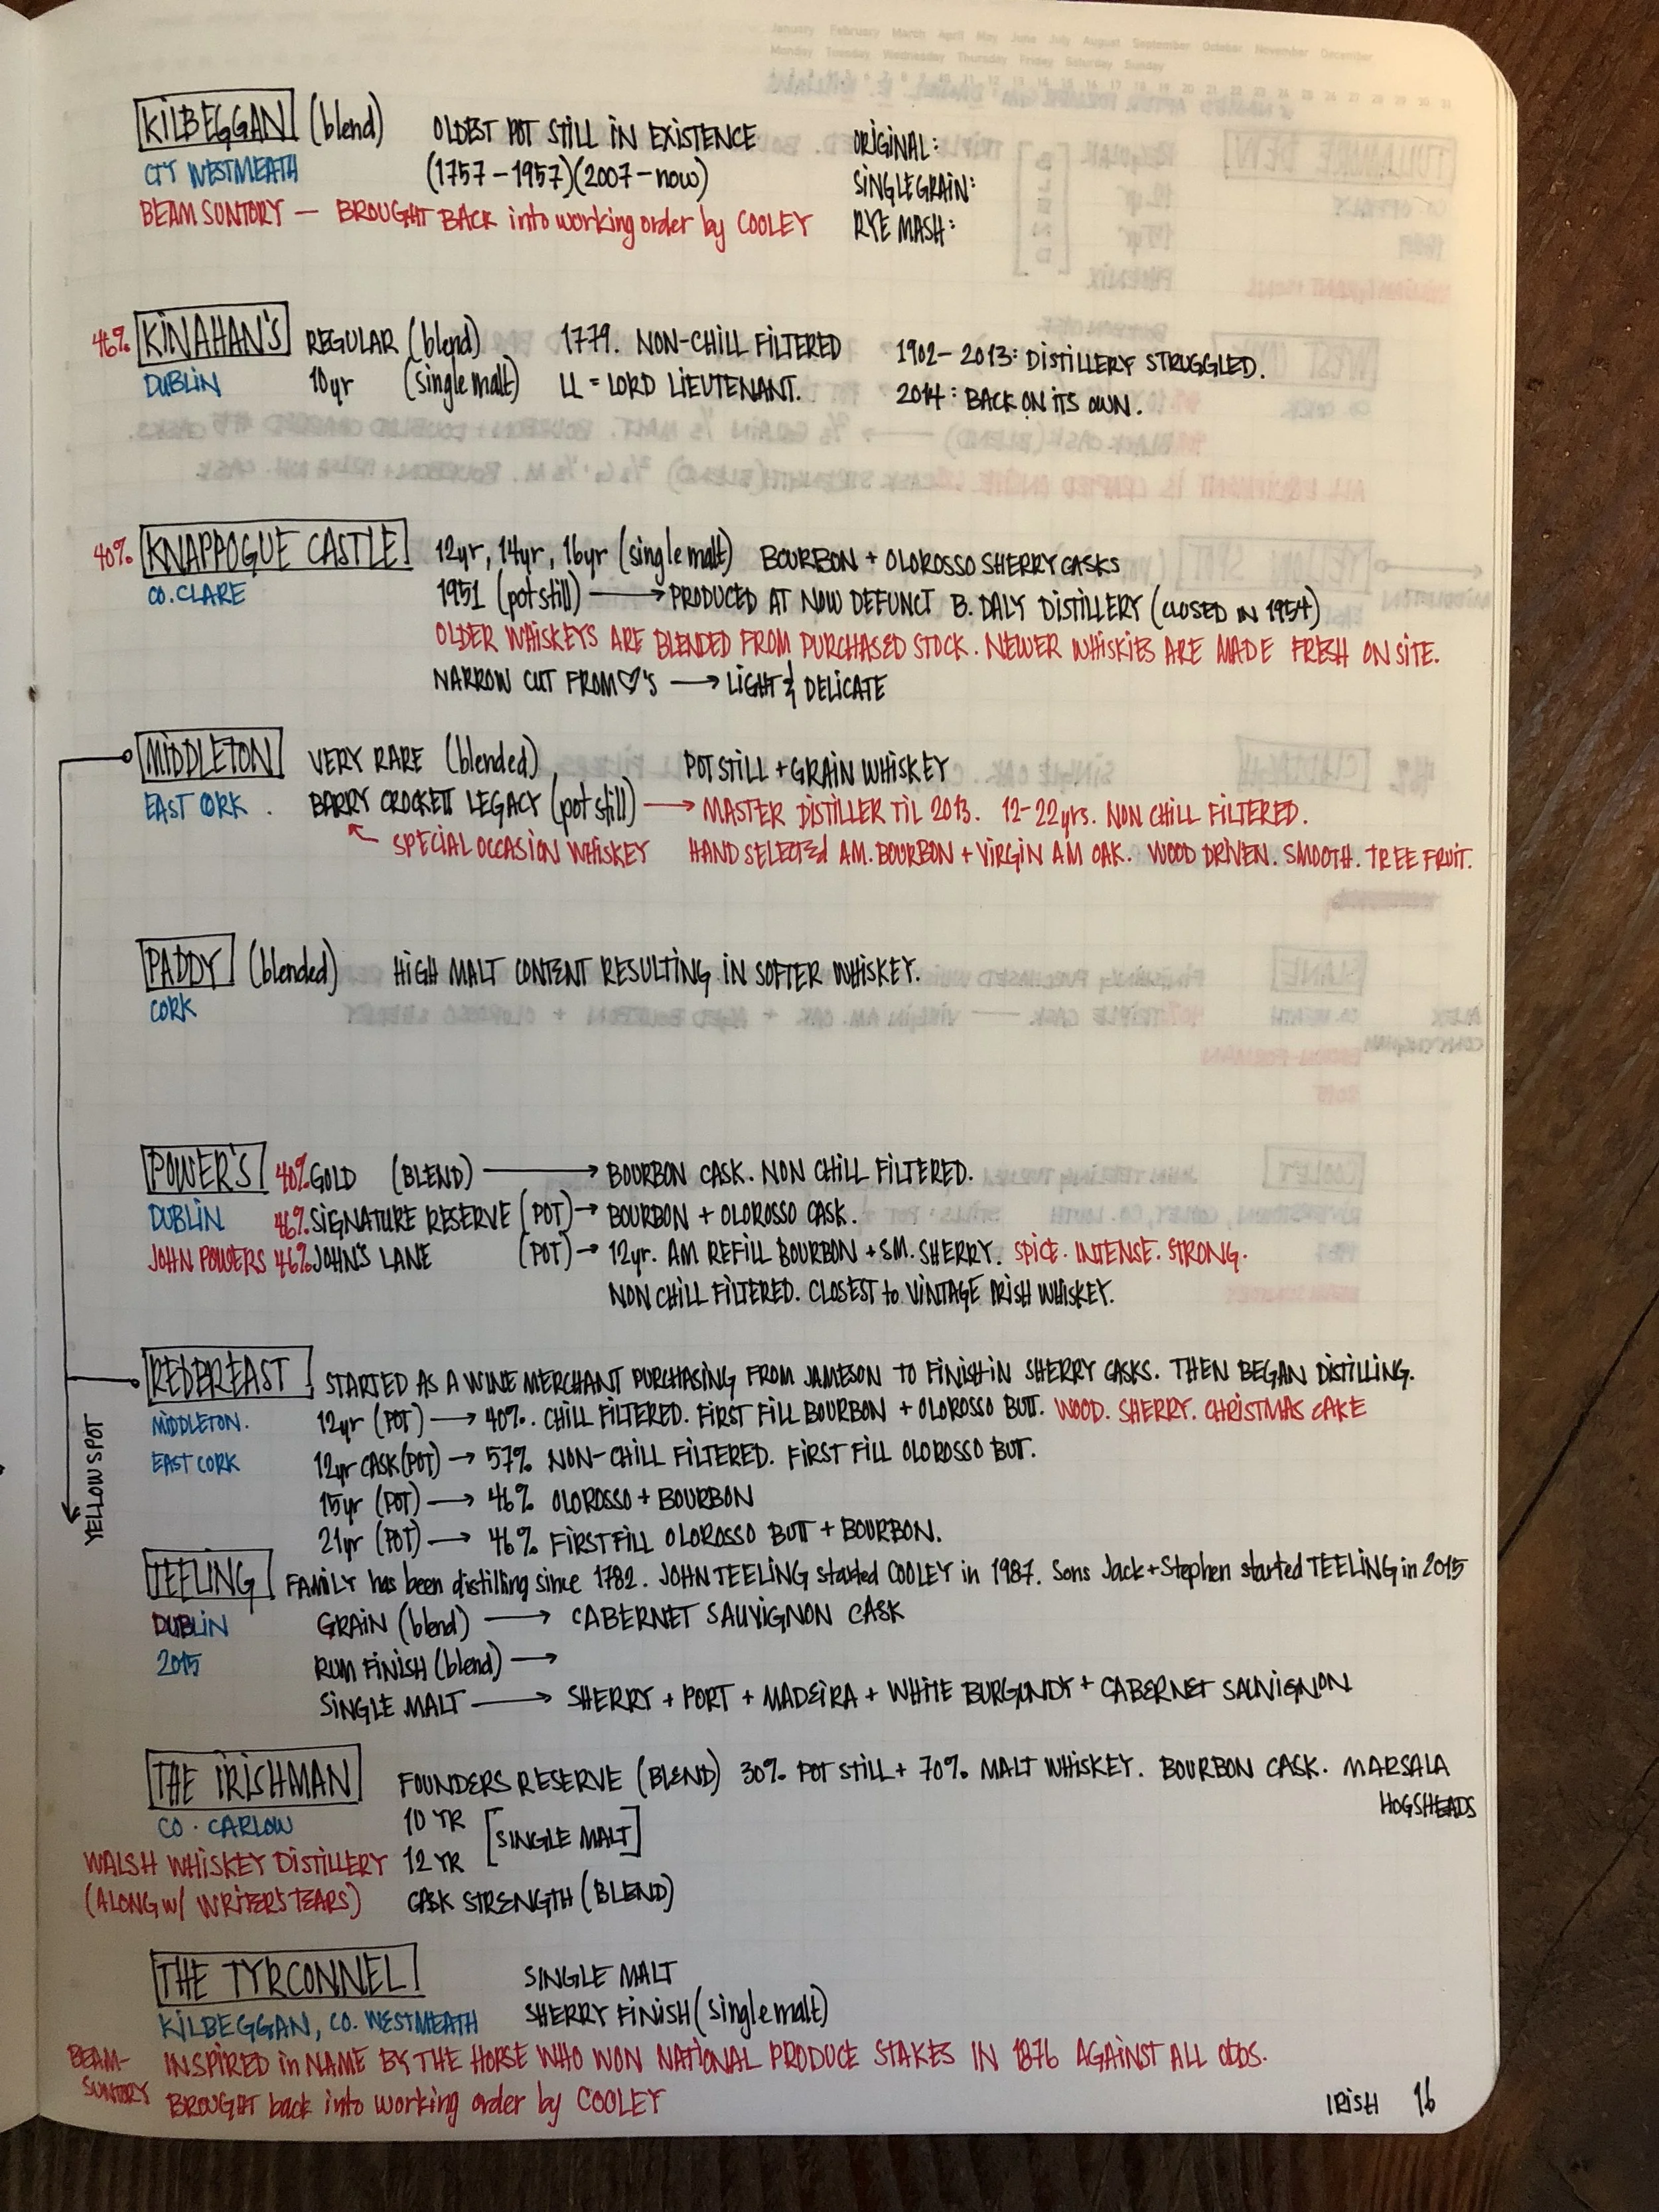 January February March April May June July August September October November December
Monday Tuesday Wednesday Thursday Friday Saturday Sunday
KILBEGGAN (blend) OLDEST POT STILL IN EXISTENCE ORIGINAL:
CTY WESTMEATH (1757-1957)(2007-now) SINGLE GRAIN:
BEAM SUNTORY — BROUGHT BACK into working order by COOLEY RYE MASH:
46% KINAHAN'S REGULAR (blend) 1779. NON-CHILL FILTERED 1902-2013: DISTILLERY STRUGGLED.
DUBLIN 10yr (single malt) LL = LORD LIEUTENANT. 2014: BACK ON ITS OWN.
40% KNAPPOGUE CASTLE 12yr, 14yr, 16yr (single malt) BOURBON + OLOROSSO SHERRY CASKS
CO. CLARE 1951 (pot still) → PRODUCED AT NOW DEFUNCT B. DALY DISTILLERY (CLOSED IN 1954)
OLDER WHISKEYS ARE BLENDED FROM PURCHASED STOCK. NEWER WHISKIES ARE MADE FRESH ON SITE.
NARROW CUT FROM ♡'S → LIGHT & DELICATE
MIDDLETON VERY RARE (blended) POT STILL + GRAIN WHISKEY
EAST CORK. BARRY CROCKETT LEGACY (pot still) → MASTER DISTILLER TIL 2013. 12-22yrs. NON CHILL FILTERED.
SPECIAL OCCASION WHISKEY HAND SELECTEd AM. BOURBON + VIRGIN AM OAK. WOOD DRIVEN. SMOOTH. TREE FRUIT.
PADDY (blended) HIGH MALT CONTENT RESULTING IN SOFTER WHISKEY.
CORK
POWER'S 40% GOLD (BLEND) → BOURBON CASK. NON CHILL FILTERED.
DUBLIN 46% SIGNATURE RESERVE (POT) → BOURBON + OLOROSSO CASK.
JOHN POWERS 46% JOHN'S LANE (POT) → 12yr. AM REFILL BOURBON + SM. SHERRY. SPICE. INTENSE. STRONG.
NON CHILL FILTERED. CLOSEST to VINTAGE IRISH WHISKEY.
REDBREAST STARTED AS A WINE MERCHANT PURCHASING FROM JAMESON TO FINISH IN SHERRY CASKS. THEN BEGAN DISTILLING.
MIDDLETON. 12yr (POT) → 40%. CHILL FILTERED. FIRST FILL BOURBON + OLOROSSO BUTT. WOOD. SHERRY. CHRISTMAS CAKE
EAST CORK 12yr CASK (POT) → 57% NON-CHILL FILTERED. FIRST FILL OLOROSSO BUT.
15yr (POT) → 46% OLOROSSO + BOURBON
21yr (POT) → 46% FIRST FILL OLOROSSO BUTT + BOURBON.
YELLOW SPOT
TEELING FAMILY has been distilling since 1782. JOHN TEELING started COOLEY in 1987. Sons Jack + Stephen started TEELING in 2015
DUBLIN GRAIN (blend) → CABERNET SAUVIGNON CASK
2015 RUM FINISH (blend) →
SINGLE MALT → SHERRY + PORT + MADEIRA + WHITE BURGUNDY + CABERNET SAUVIGNON
THE IRISHMAN FOUNDERS RESERVE (BLEND) 30% POT STILL + 70% MALT WHISKEY. BOURBON CASK. MARSALA
HOGSHEADS
CO. CARLOW 10 YR [SINGLE MALT]
WALSH WHISKEY DISTILLERY 12 YR
(ALONG W/ WRITER'S TEARS) CASK STRENGTH (BLEND)
THE TYRCONNEL SINGLE MALT
KILBEGGAN, CO. WESTMEATH SHERRY FINISH (single malt)
BEAM- INSPIRED in NAME BY THE HORSE WHO WON NATIONAL PRODUCE STAKES IN 1876 AGAINST ALL Odds.
SUNTORY BROUGHT back into working order by COOLEY
IRISH 16